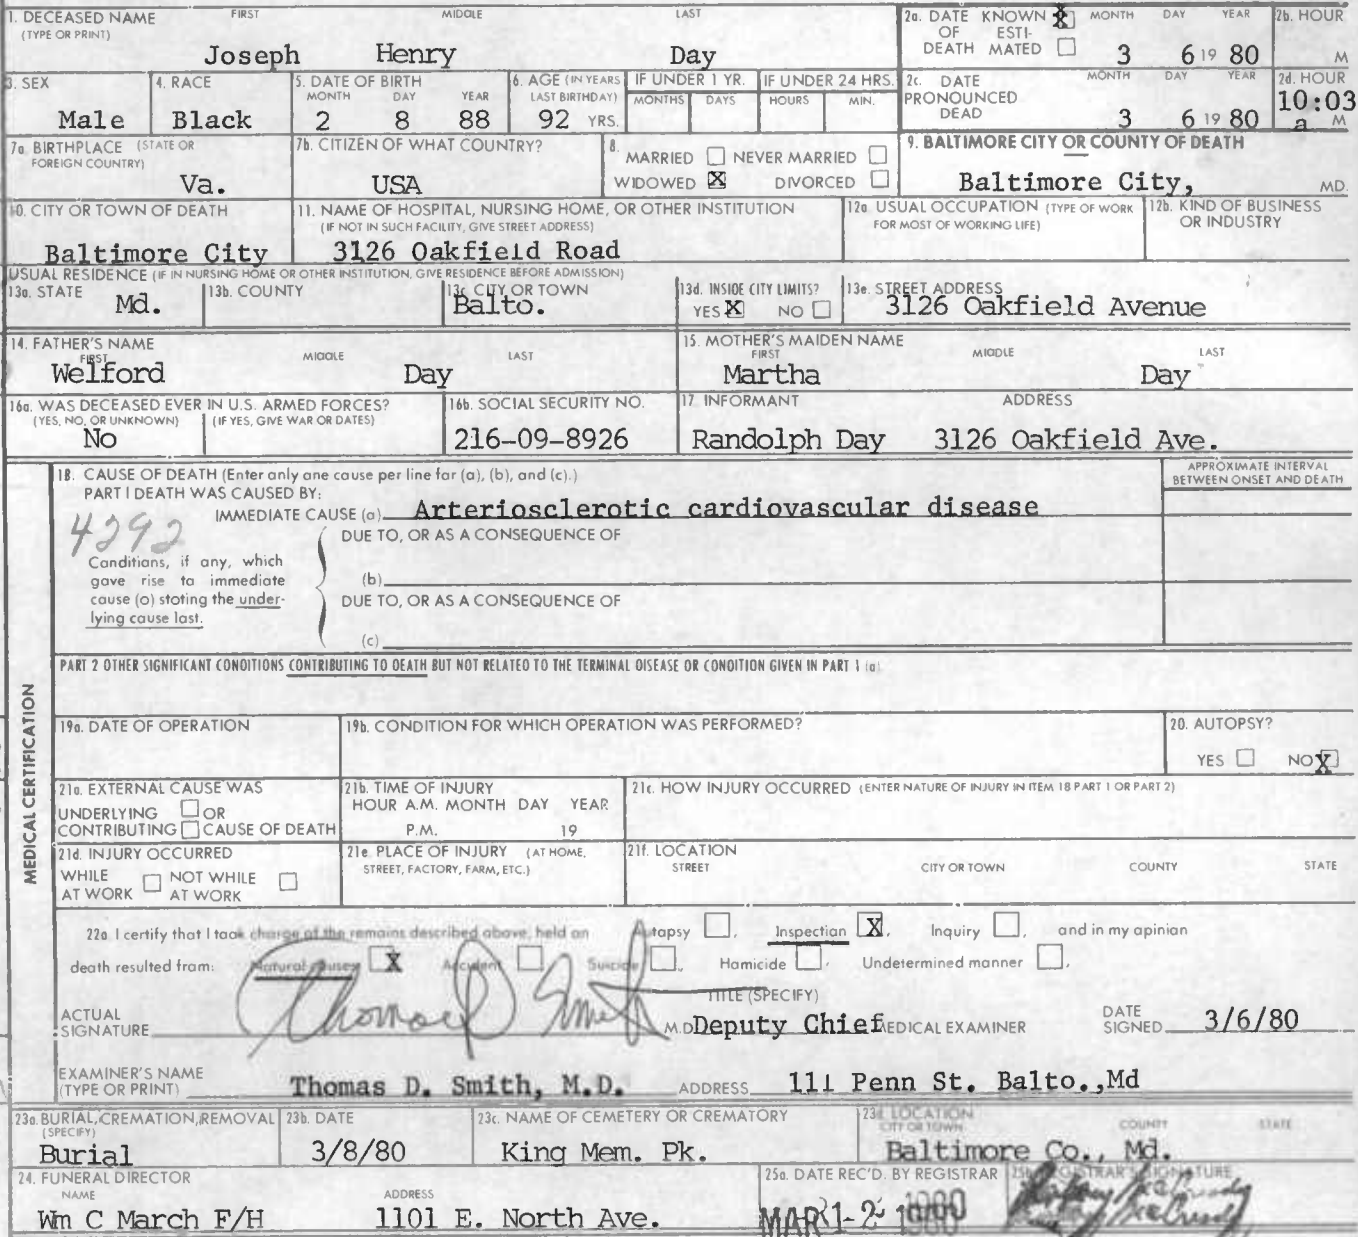 1. DECEASED NAME FIRST MIDDLE LAST
(TYPE OR PRINT)
Joseph Henry Day
2a. DATE KNOWN X MONTH DAY YEAR
OF ESTI-
DEATH MATED 3 6 19 80
2b. HOUR
M
3. SEX
Male
4. RACE
Black
5. DATE OF BIRTH
MONTH DAY YEAR
2 8 88
6. AGE (IN YEARS
LAST BIRTHDAY)
92 YRS.
IF UNDER 1 YR.
MONTHS DAYS
IF UNDER 24 HRS.
HOURS MIN.
2c. DATE MONTH DAY YEAR
PRONOUNCED
DEAD 3 6 19 80
2d. HOUR
10:03
a M
7a. BIRTHPLACE (STATE OR
FOREIGN COUNTRY)
Va.
7b. CITIZEN OF WHAT COUNTRY?
USA
8.
MARRIED NEVER MARRIED
WIDOWED X DIVORCED
9. BALTIMORE CITY OR COUNTY OF DEATH
Baltimore City, MD.
10. CITY OR TOWN OF DEATH
Baltimore City
11. NAME OF HOSPITAL, NURSING HOME, OR OTHER INSTITUTION
(IF NOT IN SUCH FACILITY, GIVE STREET ADDRESS)
3126 Oakfield Road
12a. USUAL OCCUPATION (TYPE OF WORK
FOR MOST OF WORKING LIFE)
12b. KIND OF BUSINESS
OR INDUSTRY
USUAL RESIDENCE (IF IN NURSING HOME OR OTHER INSTITUTION, GIVE RESIDENCE BEFORE ADMISSION)
13a. STATE
Md.
13b. COUNTY
13c. CITY OR TOWN
Balto.
13d. INSIDE CITY LIMITS?
YES X NO
13e. STREET ADDRESS
3126 Oakfield Avenue
14. FATHER'S NAME
FIRST MIDDLE LAST
Welford Day
15. MOTHER'S MAIDEN NAME
FIRST MIDDLE LAST
Martha Day
16a. WAS DECEASED EVER IN U.S. ARMED FORCES?
(YES, NO, OR UNKNOWN) (IF YES, GIVE WAR OR DATES)
No
16b. SOCIAL SECURITY NO.
216-09-8926
17. INFORMANT ADDRESS
Randolph Day 3126 Oakfield Ave.
MEDICAL CERTIFICATION
18. CAUSE OF DEATH (Enter only one cause per line for (a), (b), and (c).)
APPROXIMATE INTERVAL
BETWEEN ONSET AND DEATH
PART I DEATH WAS CAUSED BY:
IMMEDIATE CAUSE (a) Arteriosclerotic cardiovascular disease
4292
DUE TO, OR AS A CONSEQUENCE OF
Conditions, if any, which
gave rise to immediate
cause (a) stating the under-
lying cause last.
(b)
DUE TO, OR AS A CONSEQUENCE OF
(c)
PART 2 OTHER SIGNIFICANT CONDITIONS CONTRIBUTING TO DEATH BUT NOT RELATED TO THE TERMINAL DISEASE OR CONDITION GIVEN IN PART 1 (a)
19a. DATE OF OPERATION
19b. CONDITION FOR WHICH OPERATION WAS PERFORMED?
20. AUTOPSY?
YES NO X
21a. EXTERNAL CAUSE WAS
UNDERLYING OR
CONTRIBUTING CAUSE OF DEATH
21b. TIME OF INJURY
HOUR A.M. MONTH DAY YEAR
P.M. 19
21c. HOW INJURY OCCURRED (ENTER NATURE OF INJURY IN ITEM 18 PART 1 OR PART 2)
21d. INJURY OCCURRED
WHILE NOT WHILE
AT WORK AT WORK
21e. PLACE OF INJURY (AT HOME,
STREET, FACTORY, FARM, ETC.)
21f. LOCATION
STREET CITY OR TOWN COUNTY STATE
22a. I certify that I took charge of the remains described above, held an Autopsy , Inspection X, Inquiry , and in my opinion
death resulted from: Natural causes X Accident Suicide , Homicide , Undetermined manner .
TITLE (SPECIFY)
ACTUAL
SIGNATURE Thomas D Smith M.D. Deputy Chief MEDICAL EXAMINER
DATE
SIGNED 3/6/80
EXAMINER'S NAME
(TYPE OR PRINT) Thomas D. Smith, M.D. ADDRESS 111 Penn St. Balto.,Md
23a. BURIAL, CREMATION, REMOVAL
(SPECIFY)
Burial
23b. DATE
3/8/80
23c. NAME OF CEMETERY OR CREMATORY
King Mem. Pk.
23d. LOCATION
CITY OR TOWN COUNTY STATE
Baltimore Co., Md.
24. FUNERAL DIRECTOR
NAME ADDRESS
Wm C March F/H 1101 E. North Ave.
25a. DATE REC'D. BY REGISTRAR
MAR 1-2 1980
25b. REGISTRAR'S SIGNATURE